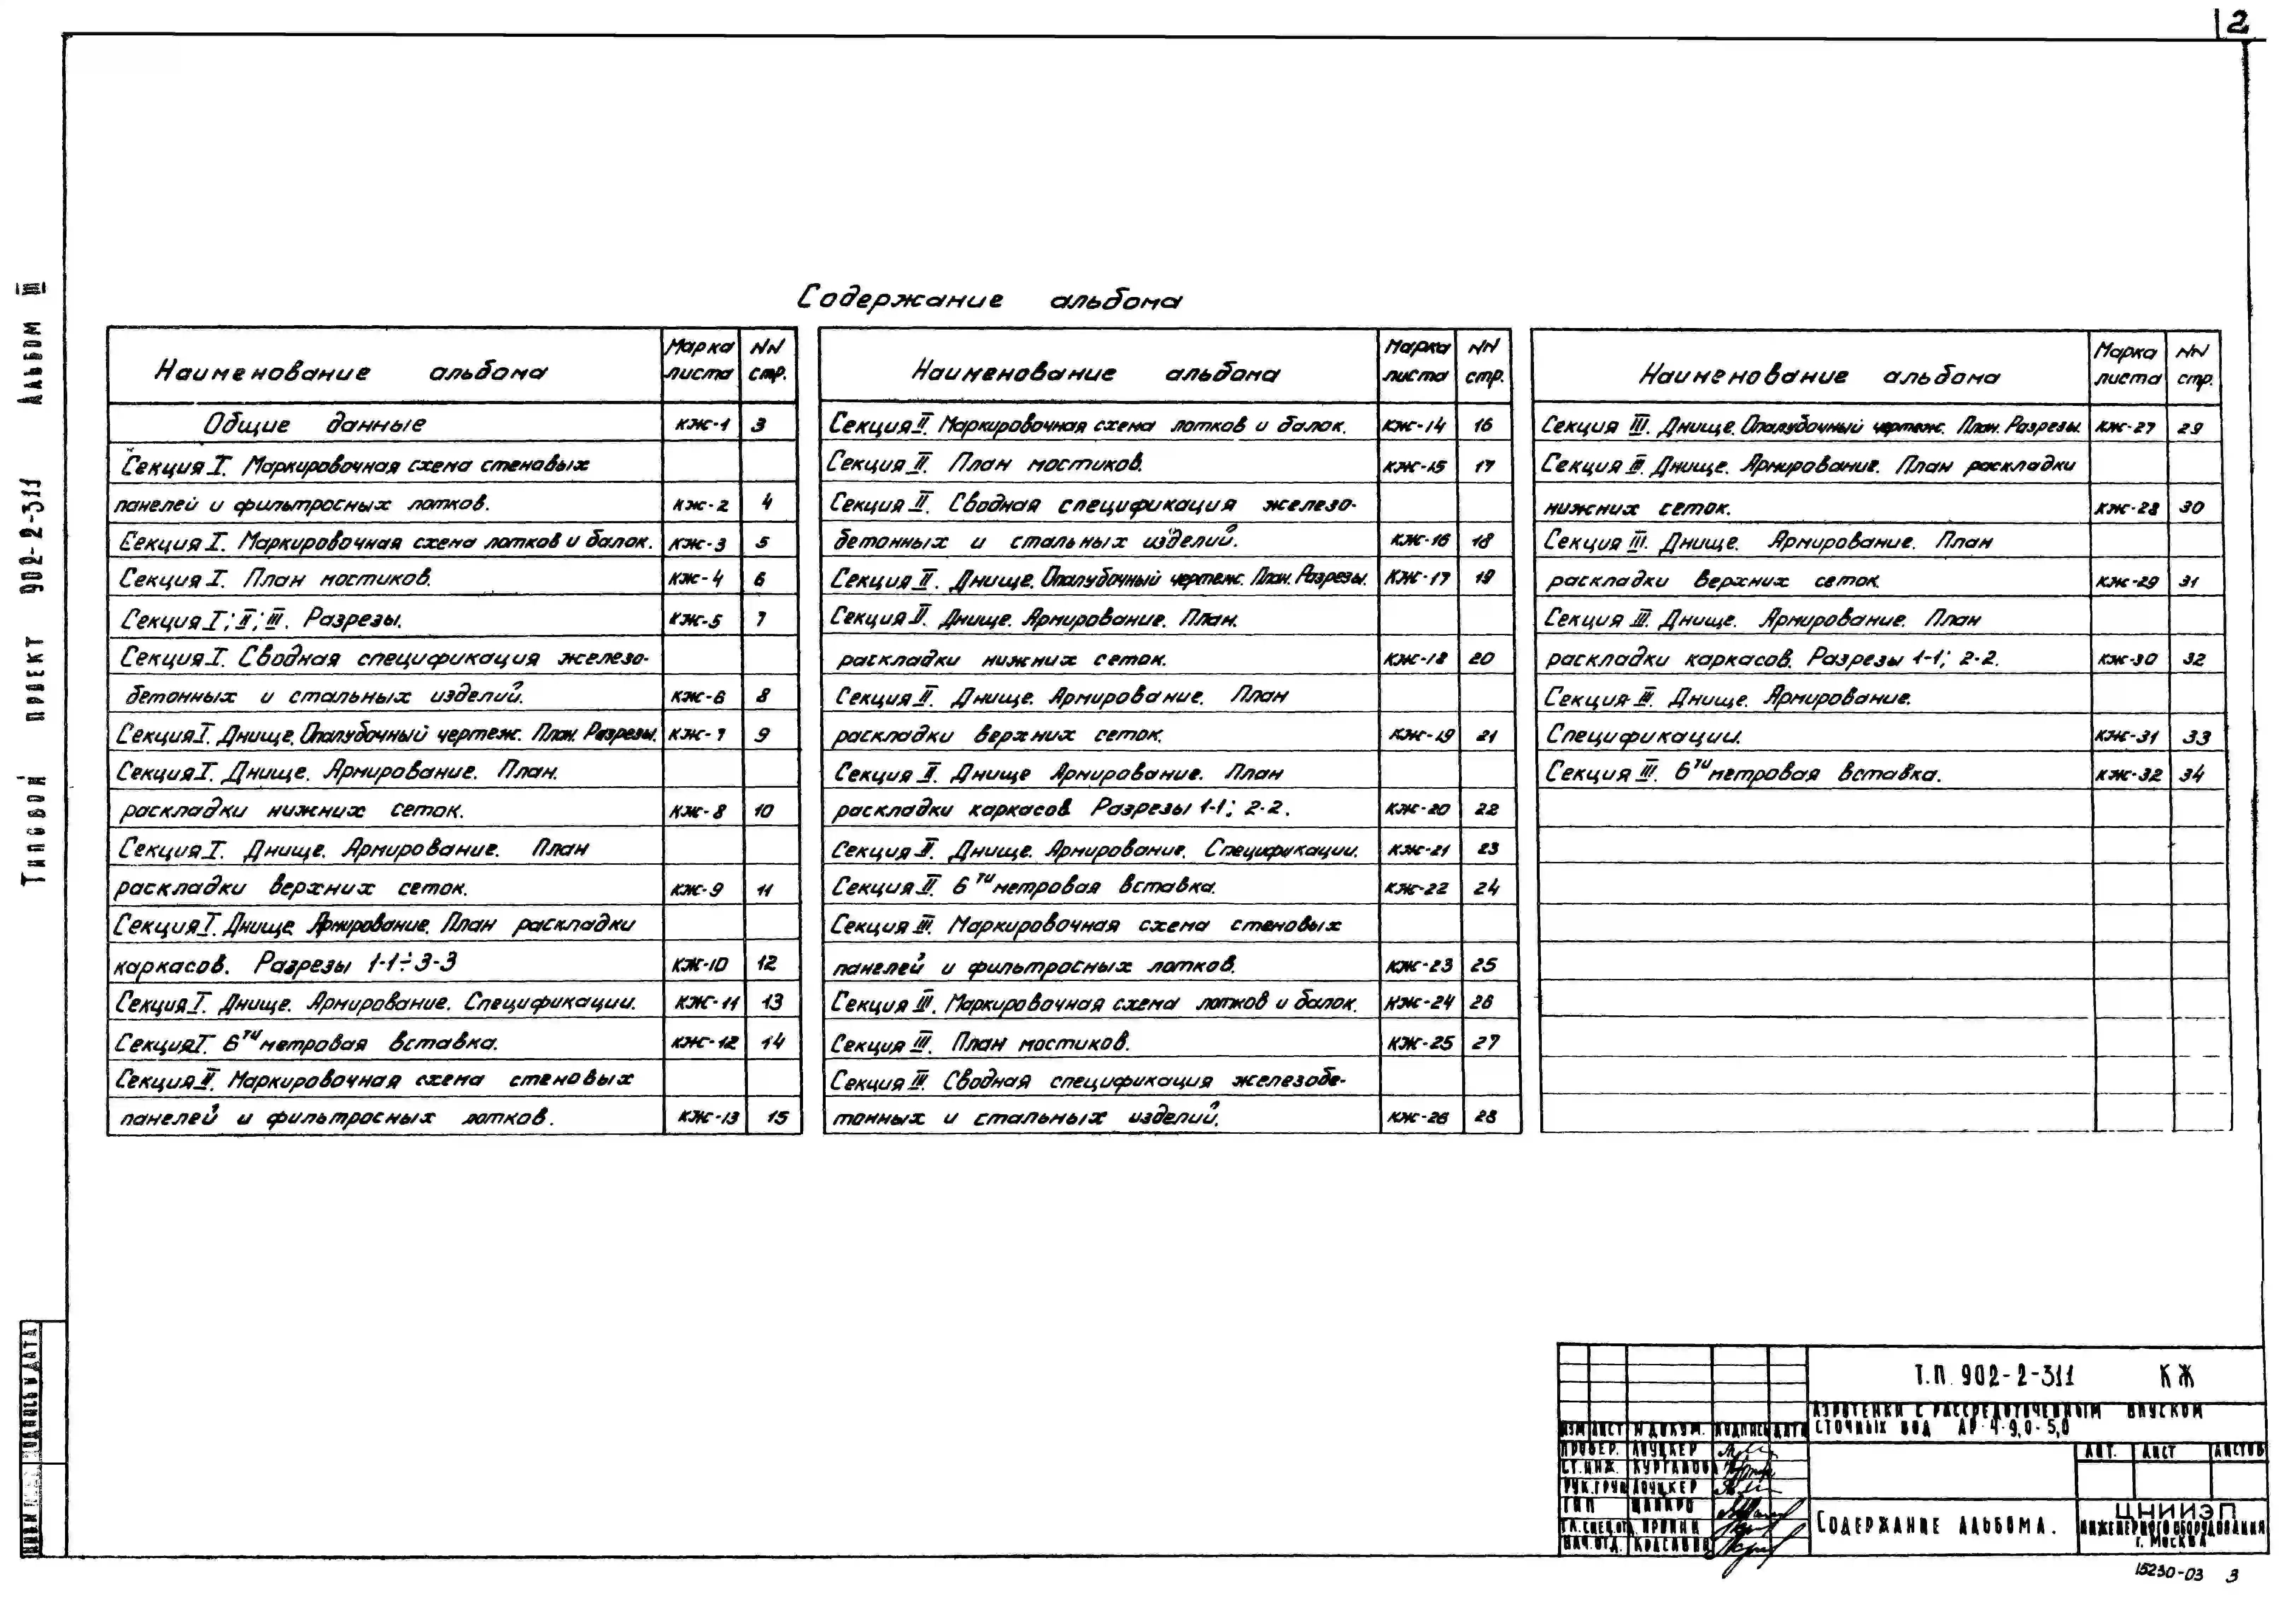 2
Типовой проект 902-2-311 Альбом III
Содержание альбома
Наименование альбома Марка листа NN стр.
Общие данные КЖ-1 3
Секция I. Маркировочная схема стеновых
панелей и фильтросных лотков. КЖ-2 4
Секция I. Маркировочная схема лотков и балок. КЖ-3 5
Секция I. План мостиков. КЖ-4 6
Секция I; II; III. Разрезы. КЖ-5 7
Секция I. Сводная спецификация железо-
бетонных и стальных изделий. КЖ-6 8
Секция I. Днище. Опалубочный чертеж. План. Разрезы. КЖ-7 9
Секция I. Днище. Армирование. План.
раскладки нижних сеток. КЖ-8 10
Секция I. Днище. Армирование. План
раскладки верхних сеток. КЖ-9 11
Секция I. Днище. Армирование. План раскладки
каркасов. Разрезы 1-1÷3-3 КЖ-10 12
Секция I. Днище. Армирование. Спецификации. КЖ-11 13
Секция I. 6ти метровая вставка. КЖ-12 14
Секция II. Маркировочная схема стеновых
панелей и фильтросных лотков. КЖ-13 15
Наименование альбома Марка листа NN стр.
Секция II. Маркировочная схема лотков и балок. КЖ-14 16
Секция II. План мостиков. КЖ-15 17
Секция II. Сводная спецификация железо-
бетонных и стальных изделий. КЖ-16 18
Секция II. Днище. Опалубочный чертеж. План. Разрезы. КЖ-17 19
Секция II. Днище. Армирование. План.
раскладки нижних сеток. КЖ-18 20
Секция II. Днище. Армирование. План
раскладки верхних сеток. КЖ-19 21
Секция II. Днище Армирование. План
раскладки каркасов Разрезы 1-1; 2-2. КЖ-20 22
Секция II. Днище. Армирование. Спецификации. КЖ-21 23
Секция II. 6ти метровая вставка. КЖ-22 24
Секция III. Маркировочная схема стеновых
панелей и фильтросных лотков. КЖ-23 25
Секция III. Маркировочная схема лотков и балок. КЖ-24 26
Секция III. План мостиков. КЖ-25 27
Секция III. Сводная спецификация железобе-
тонных и стальных изделий. КЖ-26 28
Наименование альбома Марка листа NN стр.
Секция III. Днище. Опалубочный чертеж. План. Разрезы. КЖ-27 29
Секция III. Днище. Армирование. План раскладки
нижних сеток. КЖ-28 30
Секция III. Днище. Армирование. План
раскладки верхних сеток. КЖ-29 31
Секция III. Днище. Армирование. План
раскладки каркасов. Разрезы 1-1; 2-2. КЖ-30 32
Секция III. Днище. Армирование.
Спецификации. КЖ-31 33
Секция III. 6ти метровая вставка. КЖ-32 34
Подпись и дата
Т.П. 902-2-311 КЖ
Аэротенки с рассредоточенным впуском
сточных вод АР-4-9,0-5,0
Изм Лист N докум. Подпись Дата
Провер. Лоуцкер
Ст. инж. Курганова
Рук. груп Лоуцкер
ГИП Шапиро
Гл. спец. от.
Нач. отд. Красавин
Лит. Лист Листов
Содержание альбома.
ЦНИИЭП
инженерного оборудования
г. Москва
15230-03 3